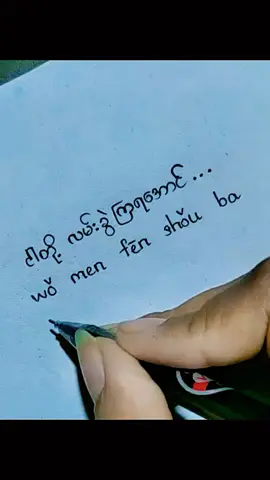 ငါတို့ လမ်းခွဲကြရအောင်...
wǒ men fēn shǒu ba